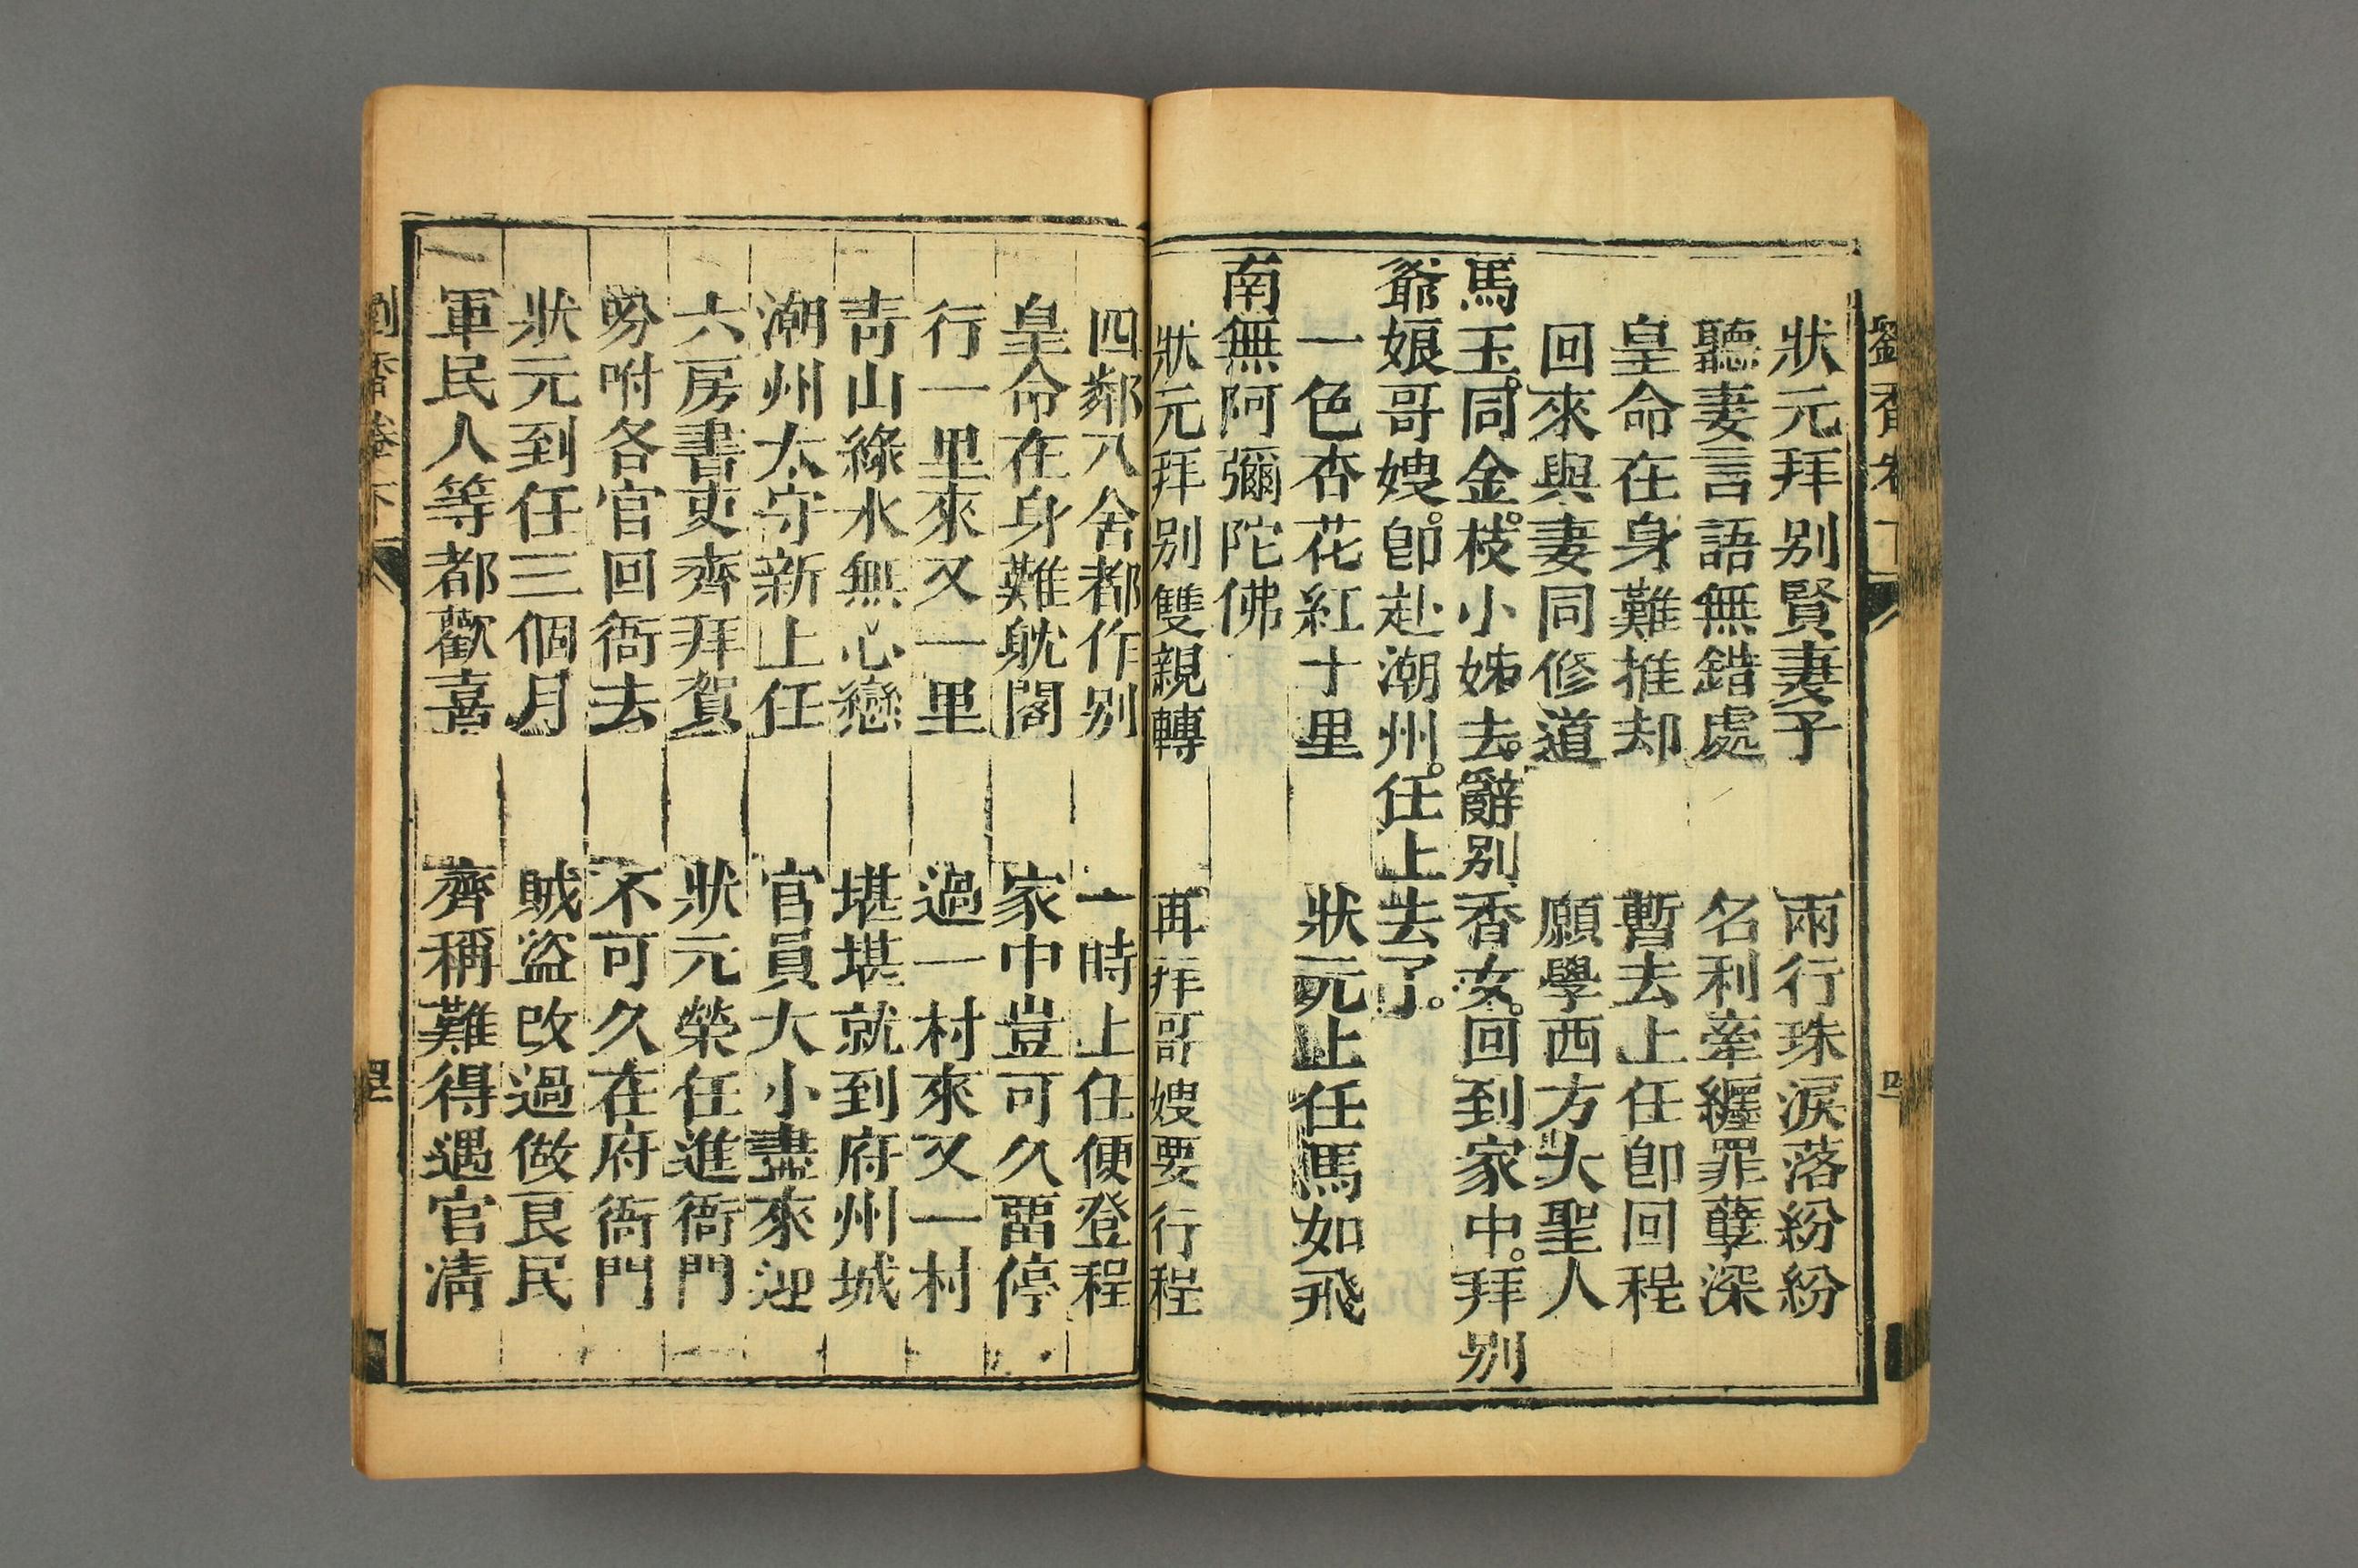 狀元拜别賢妻子　兩行珠淚落紛紛
聽妻言語無錯處　名利牽纏罪孽深
皇命在身難推却　暫去上任卽回程
回來與妻同修道　願學西方大聖人
馬玉。同金。枝。小姊去。辭别香女。回到家中。拜别
爺娘哥嫂。卽赴潮州。任上去了。
一色杏花紅十里　狀元上任馬如飛
南無阿彌陀佛
狀元拜别雙親轉　再拜哥嫂要行程
四鄰八舍都作别　一時上任便登程
皇命在身難躭閣　家中豈可久畱停
行一里來又一里　過一村來又一村
靑山綠水無心戀　堪堪就到府州城
潮州太守新上任　官員大小盡來迎
六房書吏齊拜賀　狀元榮任進衙門
吩咐各官回衙去　不可久在府衙門
狀元到任三個月　賊盜改過做良民
軍民人等都歡喜　齊稱難得遇官淸